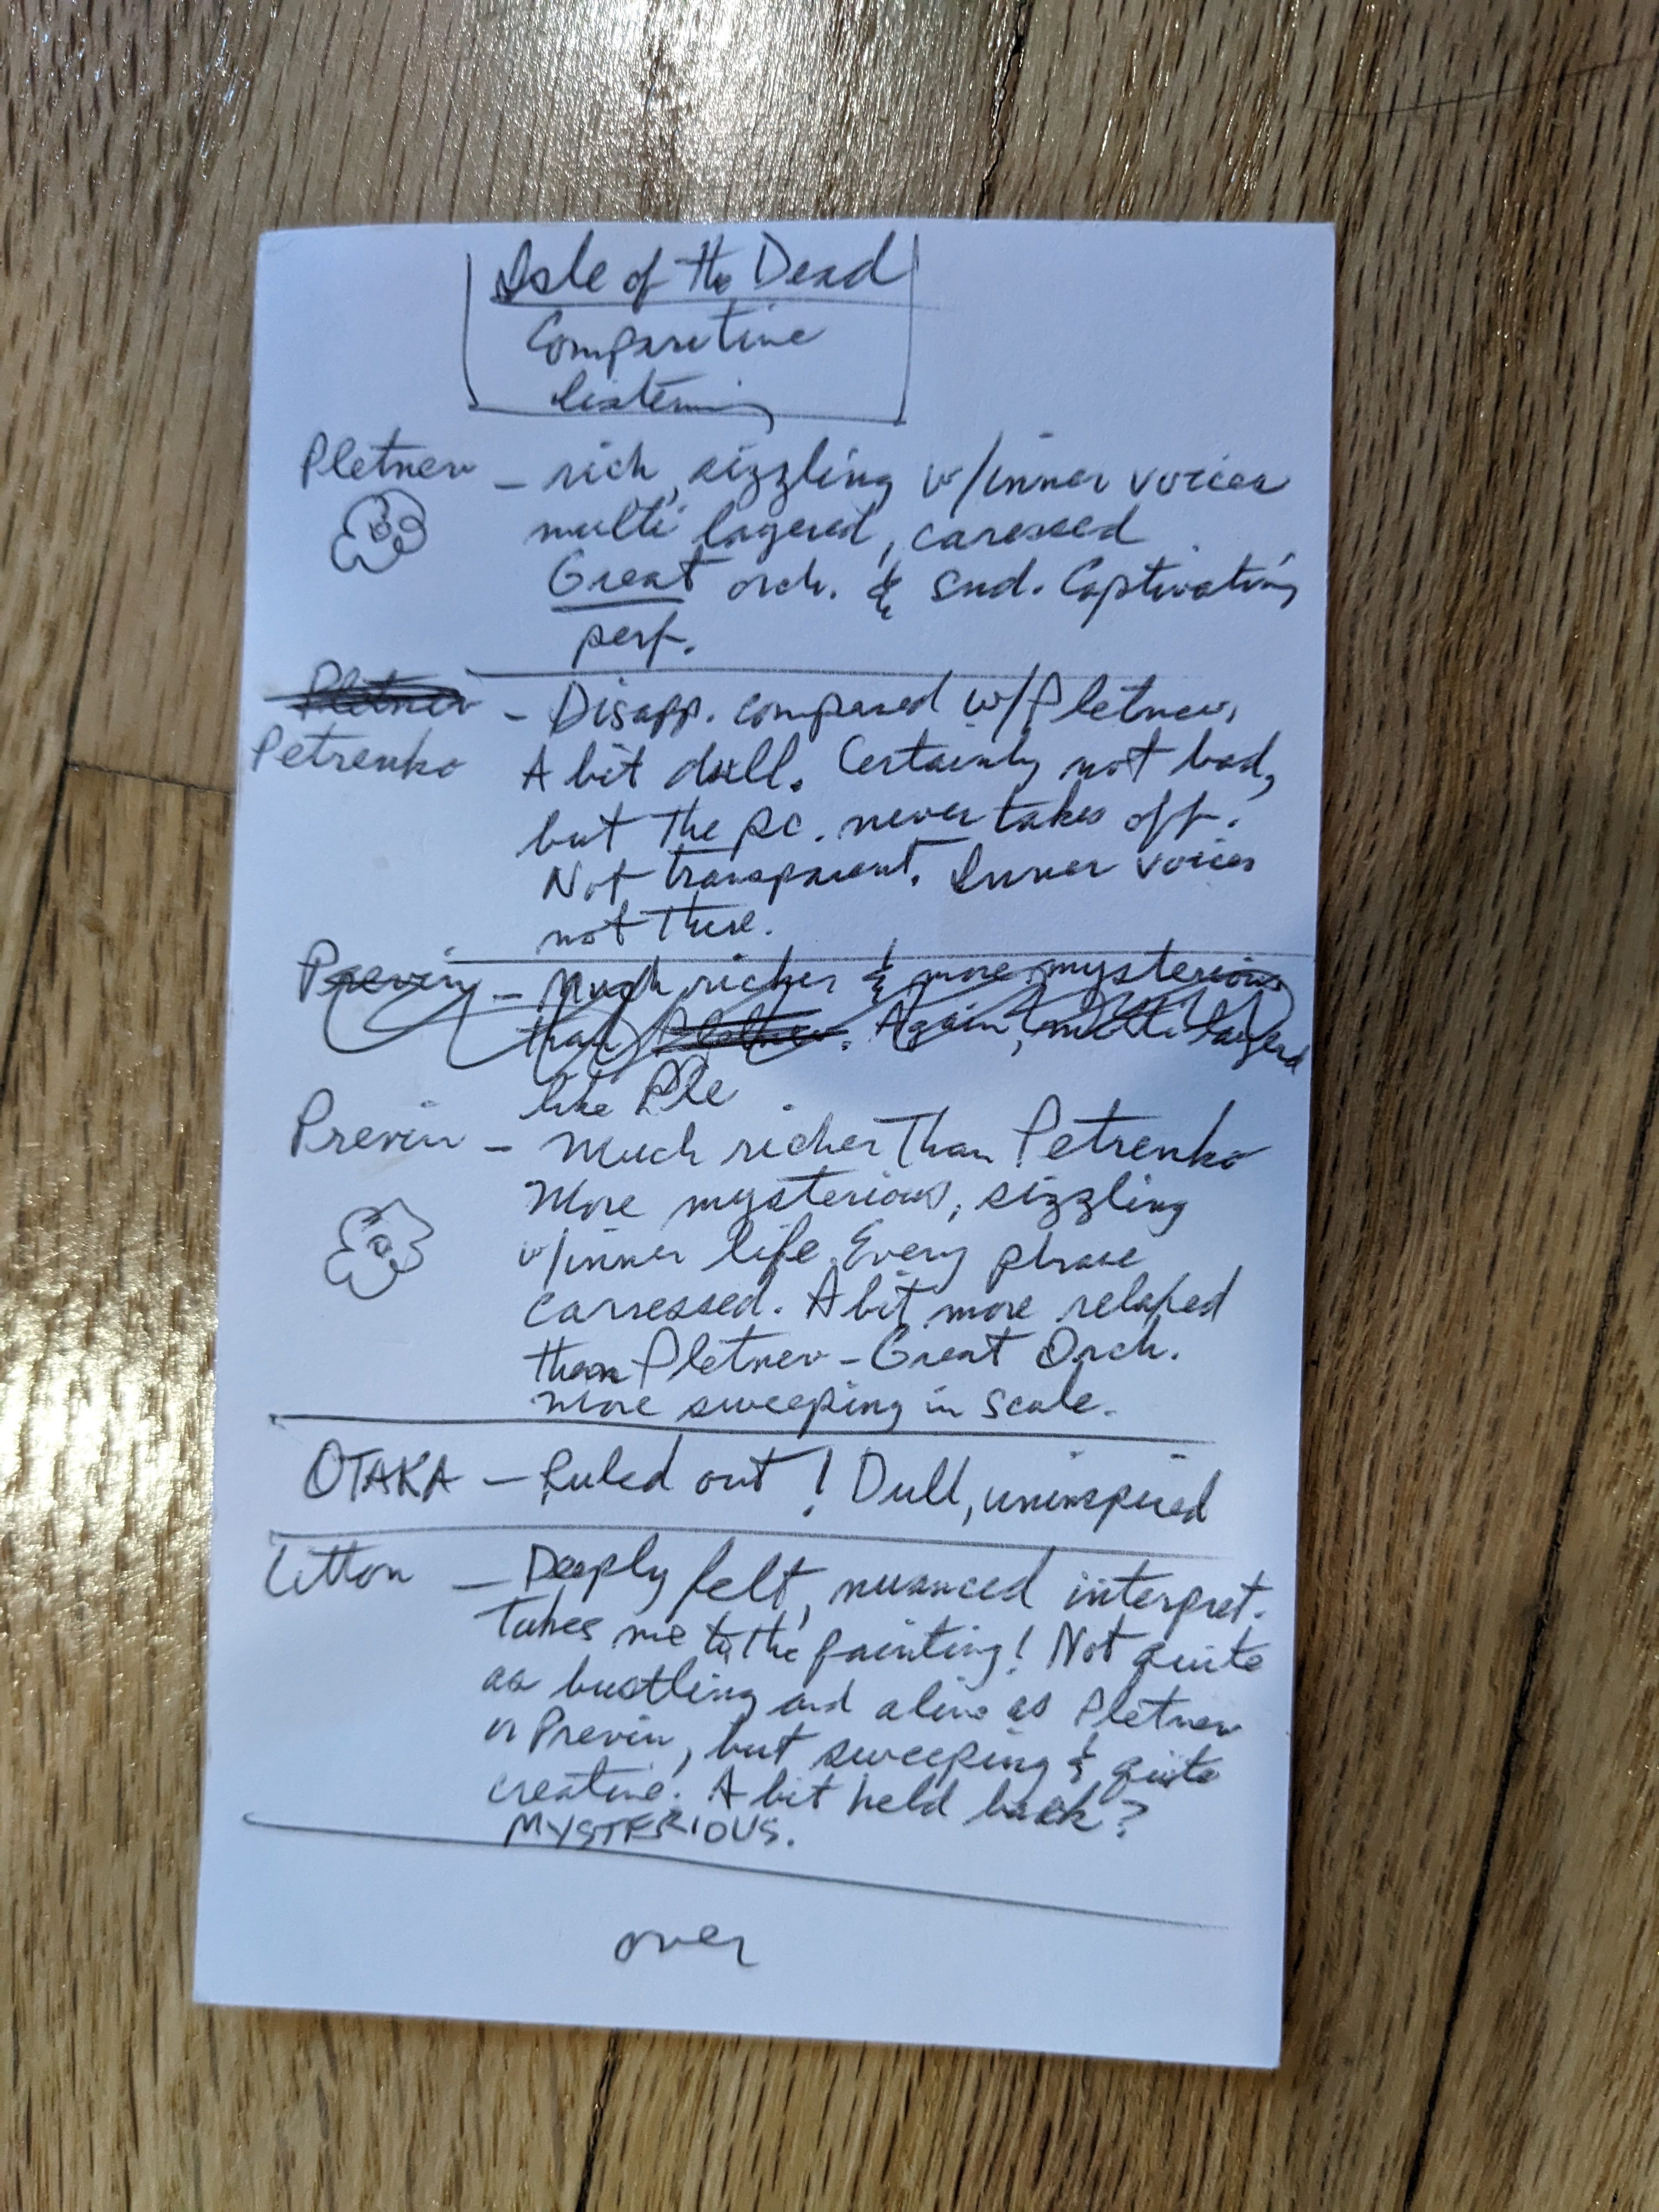 Isle of the Dead
Comparitive
listening
Pletnev – rich, sizzling w/inner voices
multi layered, caressed
Great orch. & snd. Captivating
perf.
Pletnev – Disapp. compared w/Pletnev.
Petrenko A bit dull. Certainly not bad,
but the pc. never takes off.
Not transparent. Inner voices
not there.
Previn – Much richer & more mysterious
than Pletnev. Again, multi layered
like Ple
Previn – Much richer than Petrenko
More mysterious, sizzling
w/inner life. Every phrase
carressed. A bit more relaxed
than Pletnev – Great Orch.
More sweeping in scale.
OTAKA – Ruled out! Dull, uninspired
Litton – Deeply felt, nuanced interpret.
Takes me to the painting! Not quite
as bustling and alive as Pletnev
or Previn, but sweeping & quite
creative. A bit held back?
MYSTERIOUS.
over